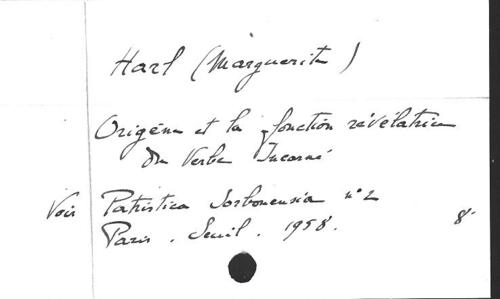 Harl (Marguerite)
Origène et la fonction révélatrice
du Verbe Incarné
Voir Patristica Sorbonensia n° 2
Paris. Seuil. 1958. 8°